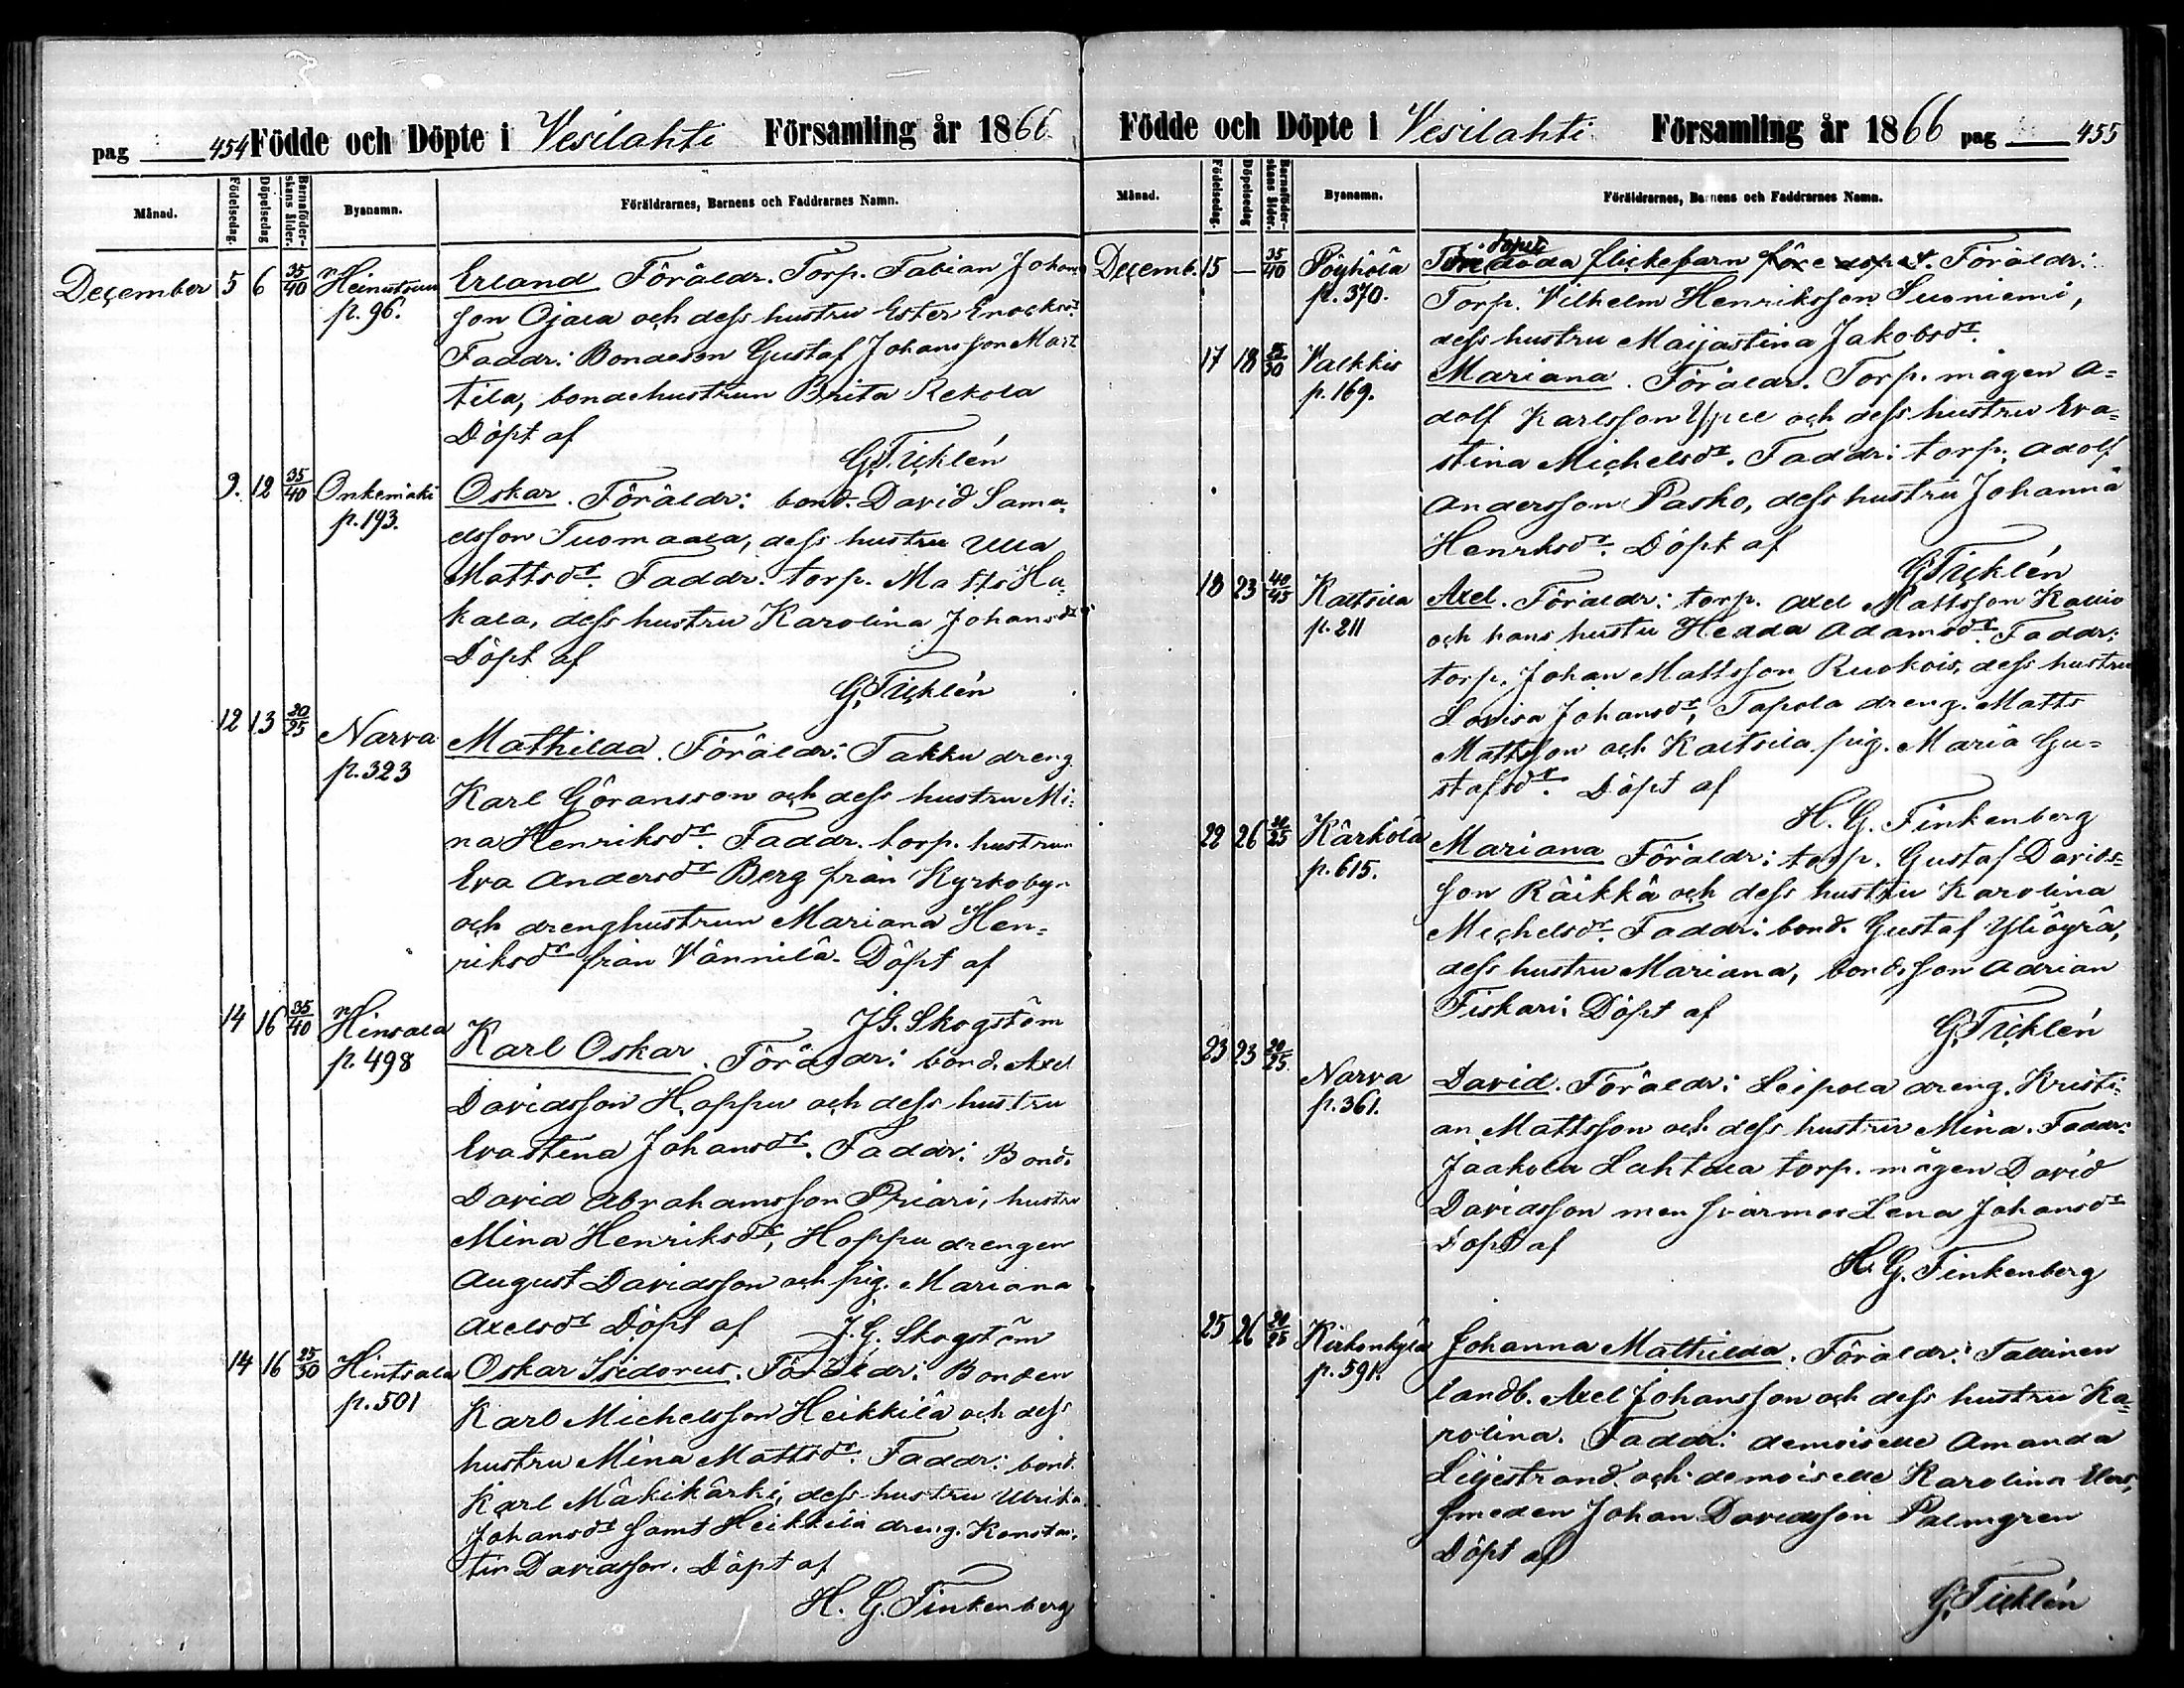 pag 454 Födde och Döpte i Vesilahti Församling år 1866
Månad. Födelsedag. Döpelsedag Barnaföderskans ålder. Bysnamn. Föräldrarnes, Barnens och Faddrarnes Namn.
December 5 6 35/40 Heinustrum Erland Föräldr. Torp. Fabian Johans
p. 96. son Ojala och dess hustru Ester Enocksdr.
Faddr: Bondeson Gustaf Johansson Mart
tila, bondehustrun Brita Rekola
Döpt af
G. Ticklén
9. 12 35/40 Onkemäki Oskar. Föräldr: bond. David Samu
p. 193. elsson Tuomaala, dess hustru Ulla
Mattsdr. Faddr. torp. Matts Hu
kala, dess hustru Karolina Johansdr
Döpt af
G. Ticklén
12 13 20/25 Narva Mathilda. Föräldr: Takku dreng
p. 323 Karl Göransson och dess hustru Mi=
na Henriksdr. Faddr. torp. hustrun
Eva Andersdr Berg från Kyrkobyn
och drenghustrun Mariana Hen=
riksdr från Vännilä. Döpt af
J. G. Skogström
14 16 35/40 Hinsala Karl Oskar. Föräldr: bond. Axel
p. 498 Davidsson Hoppu och dess hustru
Evastena Johansdr. Faddr: Bond.
David Abrahamsson Priari, hustru
Mina Henriksdr, Hoppu drengen
August Davidsson och pig. Mariana
Axelsdr Döpt af J. G. Skogström
14 16 25/30 Hintsala Oskar Isidorus. Föräldr: Bonden
p. 501 Karl Michelsson Heikkilä och dess
hustru Mina Mattsdr. Faddr: bond.
Karl Mäkikärki, dess hustru Ulrika
Johansdr samt Heikkilä dreng. Konstan
tin Davidsson. Döpt af
H. G. Tinkenberg
Födde och Döpte i Vesilahti Församling år 1866 pag 455
Månad. Födelsedag. Döpelsedag Barnaföderskans ålder. Bysnamn. Föräldrarnes, Barnens och Faddrarnes Namn.
Decemb. 15 — 35/40 Pöyhölä döda flickebarn före dopet. Föräldr:
p. 370. Torp. Vilhelm Henriksson Suoniemi,
dess hustru Maijastina Jakobsdr.
17 18 25/30 Valkkis Mariana. Föräldr. Torp. mågen A=
p. 169. dolf Karlsson Yppel och dess hustru Eva=
stina Michelsdr. Faddr: torp. Adolf
Andersson Pasko, dess hustru Johanna
Henriksdr. Döpt af
G. Ticklén
18 23 40/45 Kaltsila Axel. Föräldr: torp. Axel Mattsson Kallio
p. 211 och hans hustu Hedda Adamsdr. Faddr:
torp. Johan Mattsson Ruokois, dess hustru
Lovisa Johansdr, Tapola dreng. Matts
Mattsson och Kaltsila pig. Maria Gu=
stafsdr. Döpt af
H. G. Tinkenberg
22 26 20/25 Kärkölä Mariana Föräldr: torp. Gustaf Davids=
p. 615. son Räikkä och dess hustru Karolina
Michelsdr. Faddr: bond. Gustaf Yliögrä,
dess hustru Mariana, bond. son Adrian
Fiskari Döpt af
G. Ticklén
23 23 20/25 Narva David. Föräldr: Leipola dreng. Kristi=
p. 361. an Mattsson och dess hustru Mina. Faddr:
Jaakola Lahtaa torp. mågen David
Davidsson men svärmor Lena Johansdr
Döpt af
H. G. Tinkenberg
25 26 20/25 Kirkonkylä Johanna Mathilda. Föräldr: Tallinen
p. 591. landb. Axel Johansson och dess hustru Ka=
rolina. Faddr: demoiselle Amanda
Liljestrand och demoiselle Karolina
smeden Johan Davidsson Palmgren
Döpt af
G. Ticklén